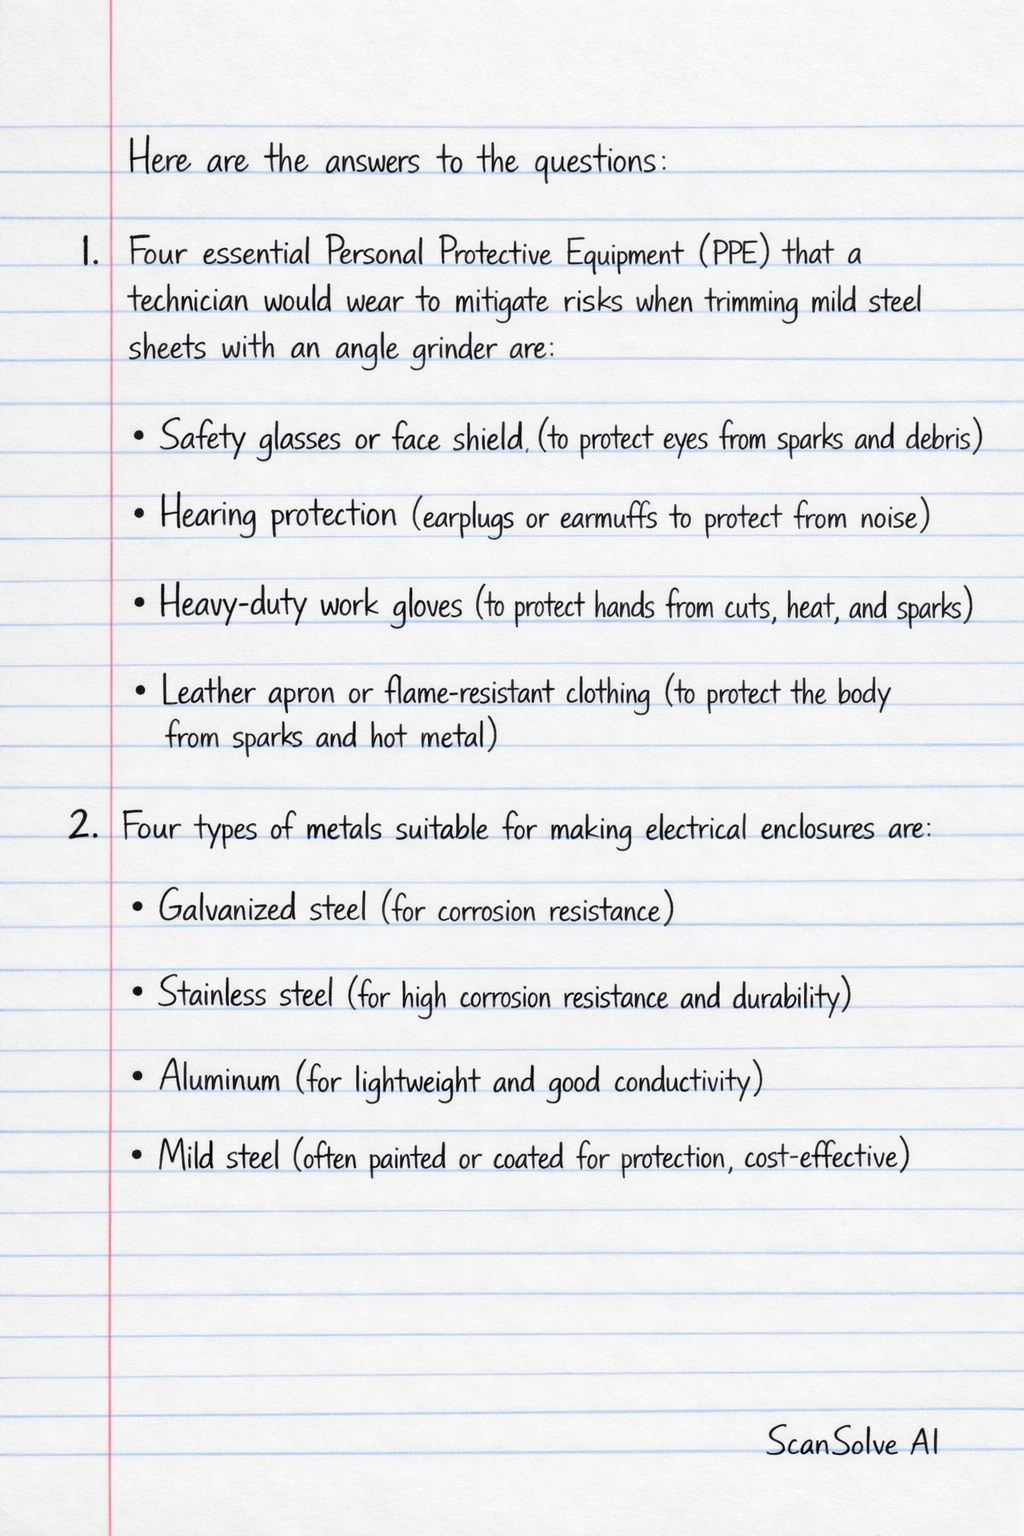 Here are the answers to the questions:
1. Four essential Personal Protective Equipment (PPE) that a
technician would wear to mitigate risks when trimming mild steel
sheets with an angle grinder are:
• Safety glasses or face shield, (to protect eyes from sparks and debris)
• Hearing protection (earplugs or earmuffs to protect from noise)
• Heavy-duty work gloves (to protect hands from cuts, heat, and sparks)
• Leather apron or flame-resistant clothing (to protect the body
from sparks and hot metal)
2. Four types of metals suitable for making electrical enclosures are:
• Galvanized steel (for corrosion resistance)
• Stainless steel (for high corrosion resistance and durability)
• Aluminum (for lightweight and good conductivity)
• Mild steel (often painted or coated for protection, cost-effective)
ScanSolve AI